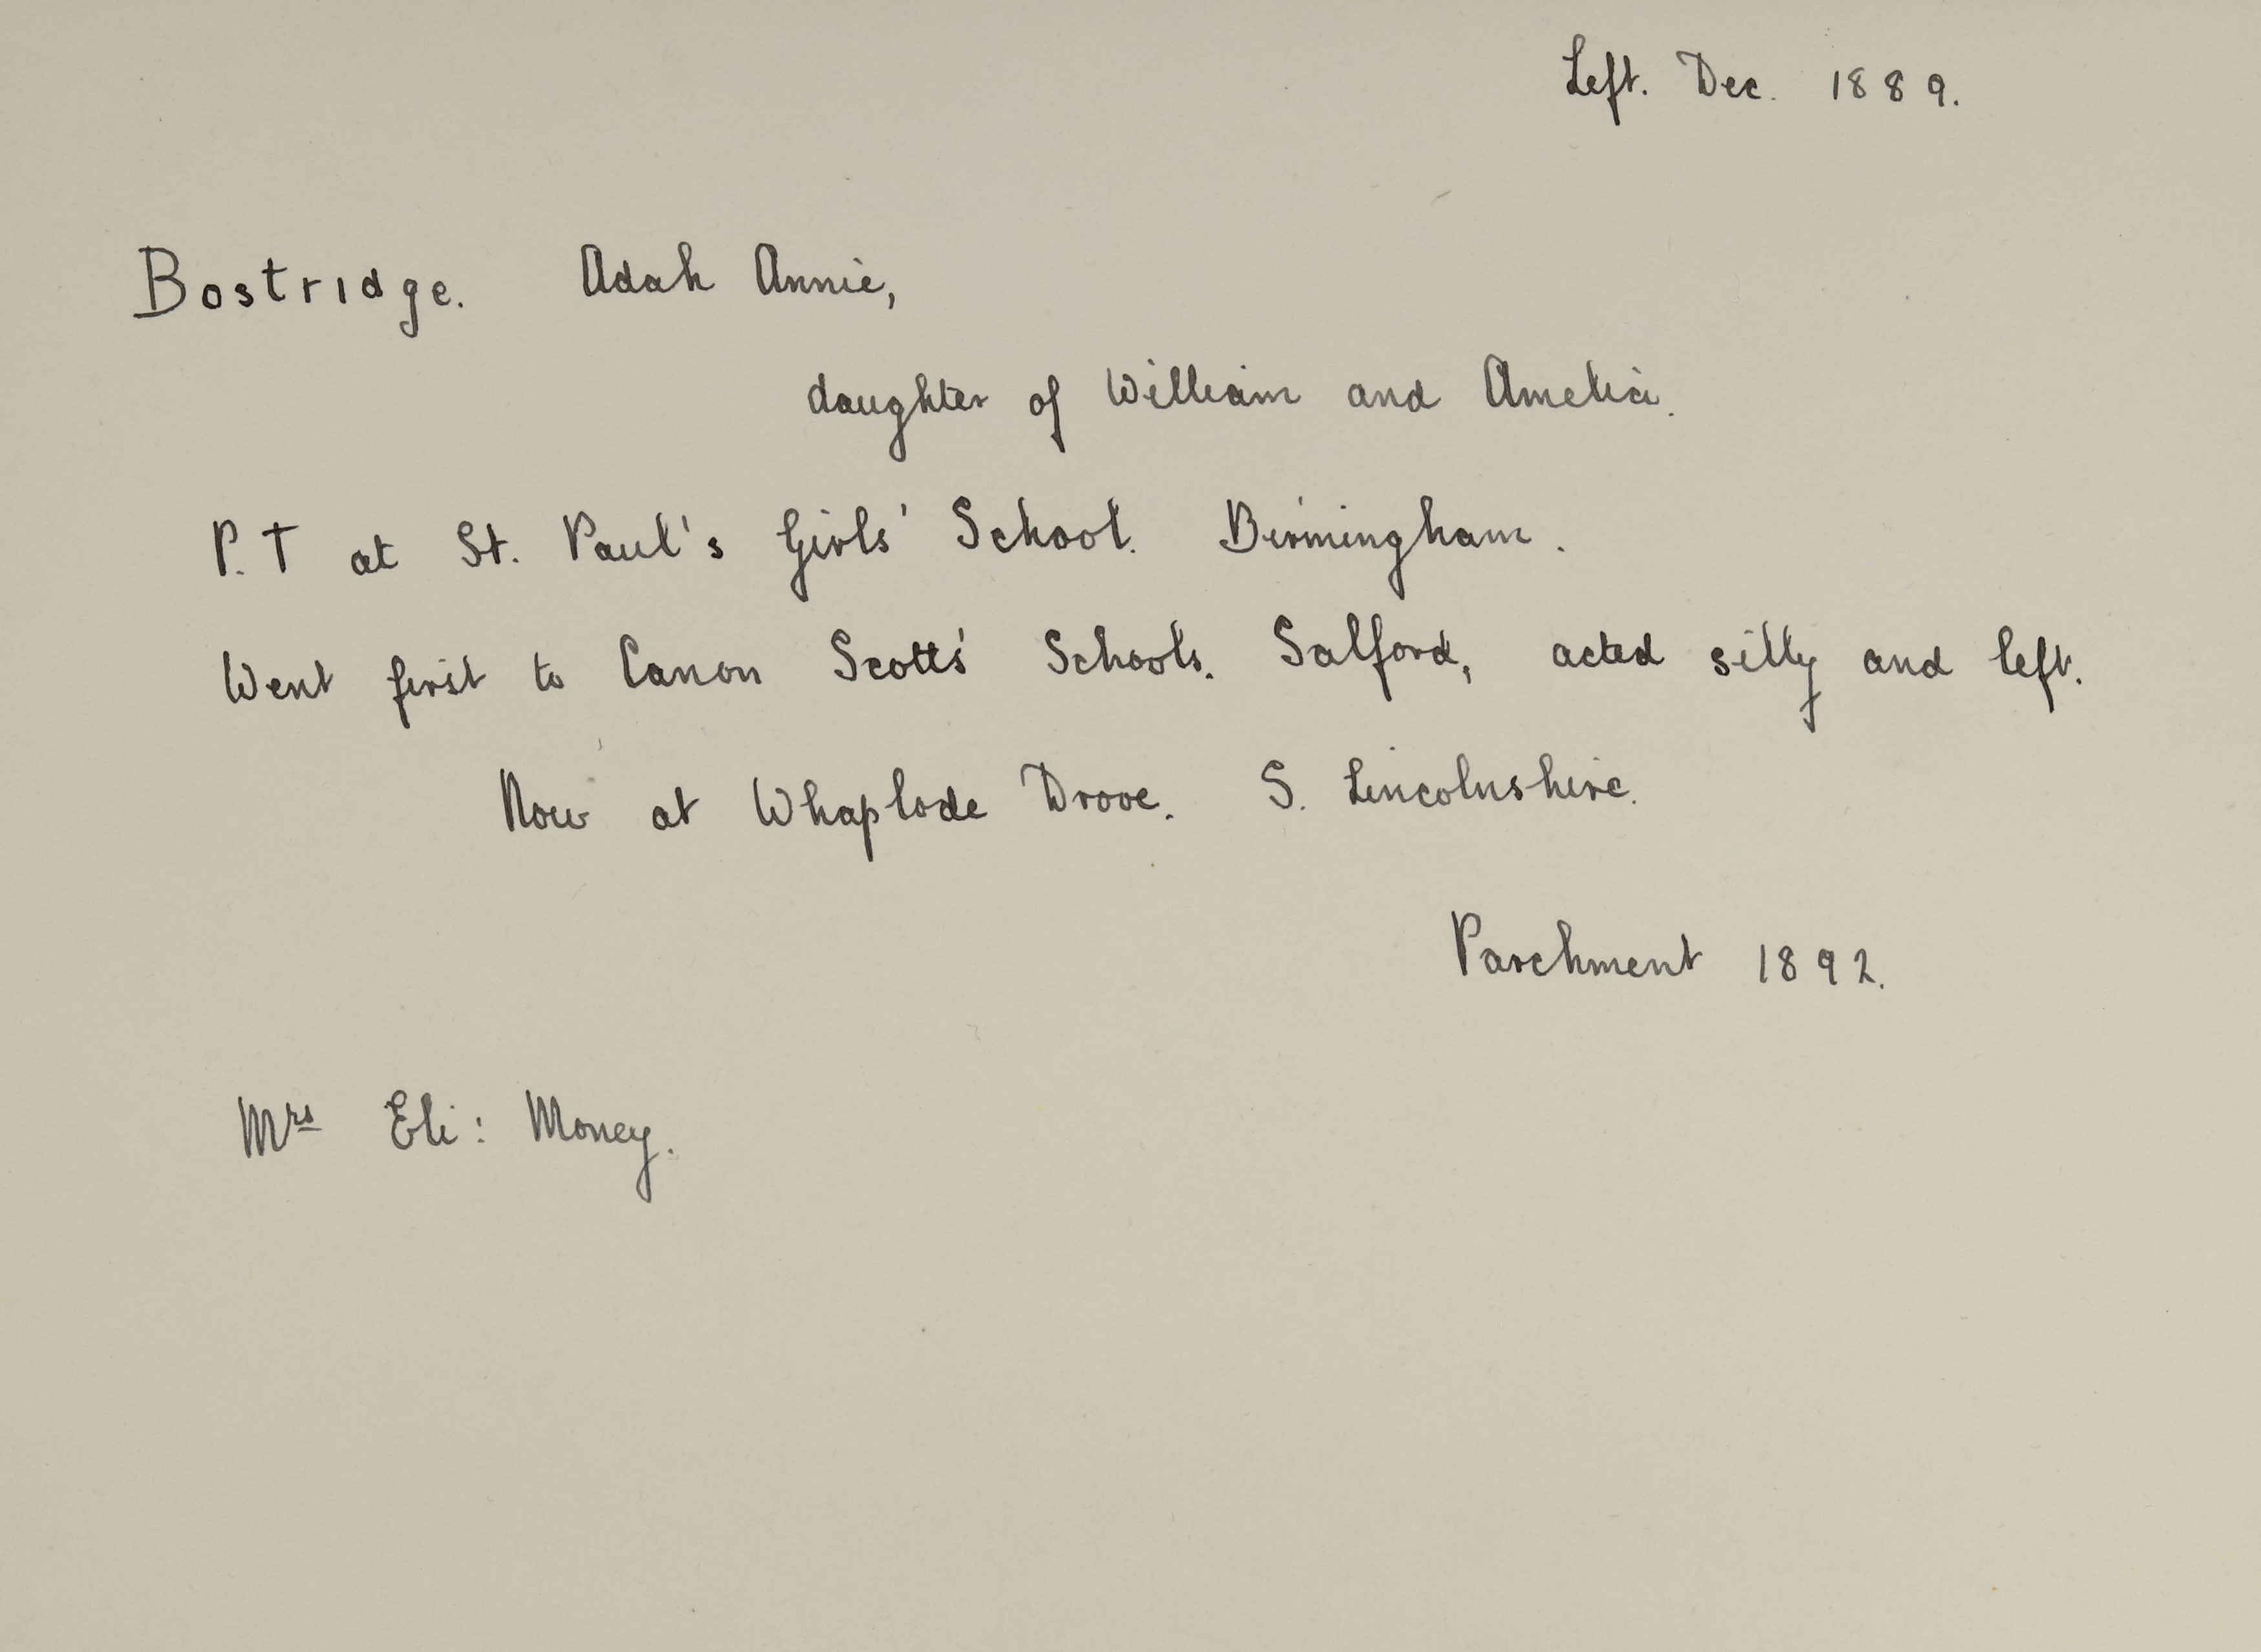 Left. Dec. 1889.
Bostridge. Adah Annie,
daughter of William and Amelia.
P.T at St. Paul's Girls' School. Birmingham.
Went first to Canon Scotts' Schools. Salford, acted silly and left.
Now at Whaplode Drove. S. Lincolnshire.
Parchment 1892.
Mrs Eli: Money.